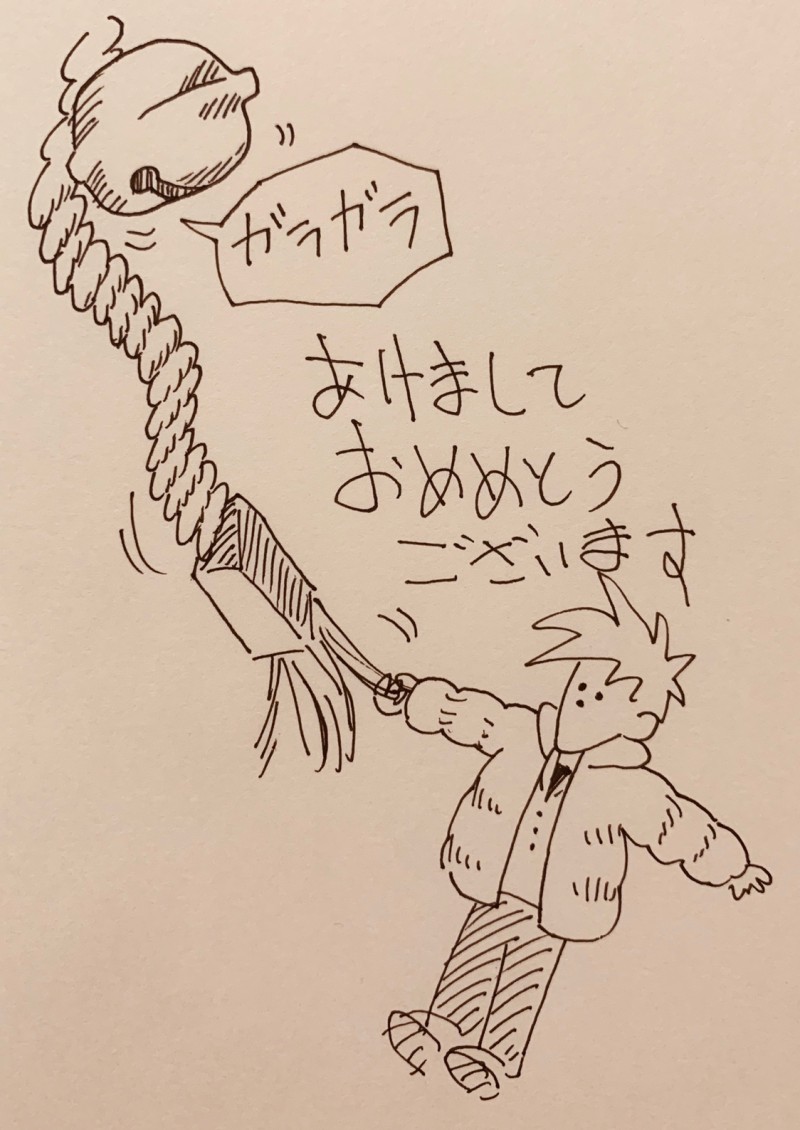 ガラガラ
あけまして
おめめとう
ございます